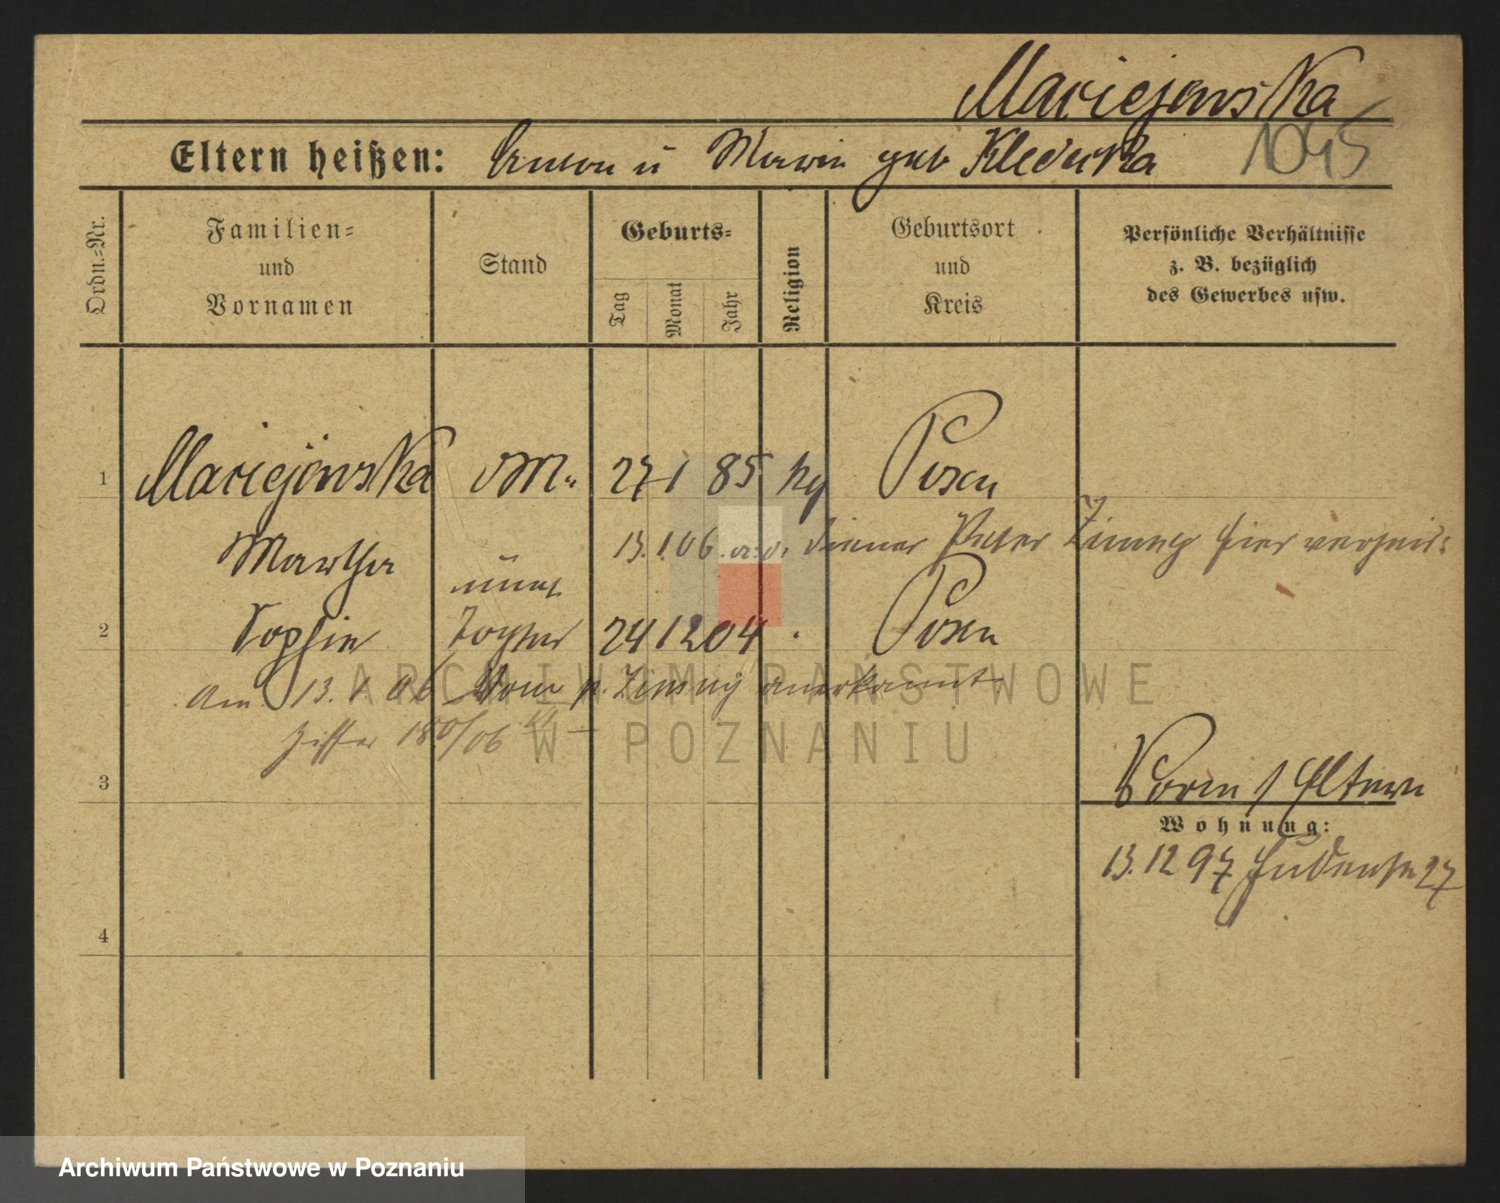 Maciejewska
Eltern heißen: Anton u Maria geb Kledecka
1045
Ordn.-Nr.
Familien- und Vornamen
Stand
Geburts-
Tag
Monat
Jahr
Religion
Geburtsort und Kreis
Persönliche Verhältnisse z. B. bezüglich des Gewerbes usw.
1 Maciejewska 27 1 85 kg Posen
Martha
13.1.06 Diener Peter hier verheir:
unehl
2 Sophie Tochter 24 12 04 Posen
Am 13.1.06 Vom p. anerkannt
Ziffer 180/06
3
Vorm / Eltern
Wohnung:
13.12 97 Judenstr 27
4
ARCHIWUM PAŃSTWOWE
W POZNANIU
Archiwum Państwowe w Poznaniu